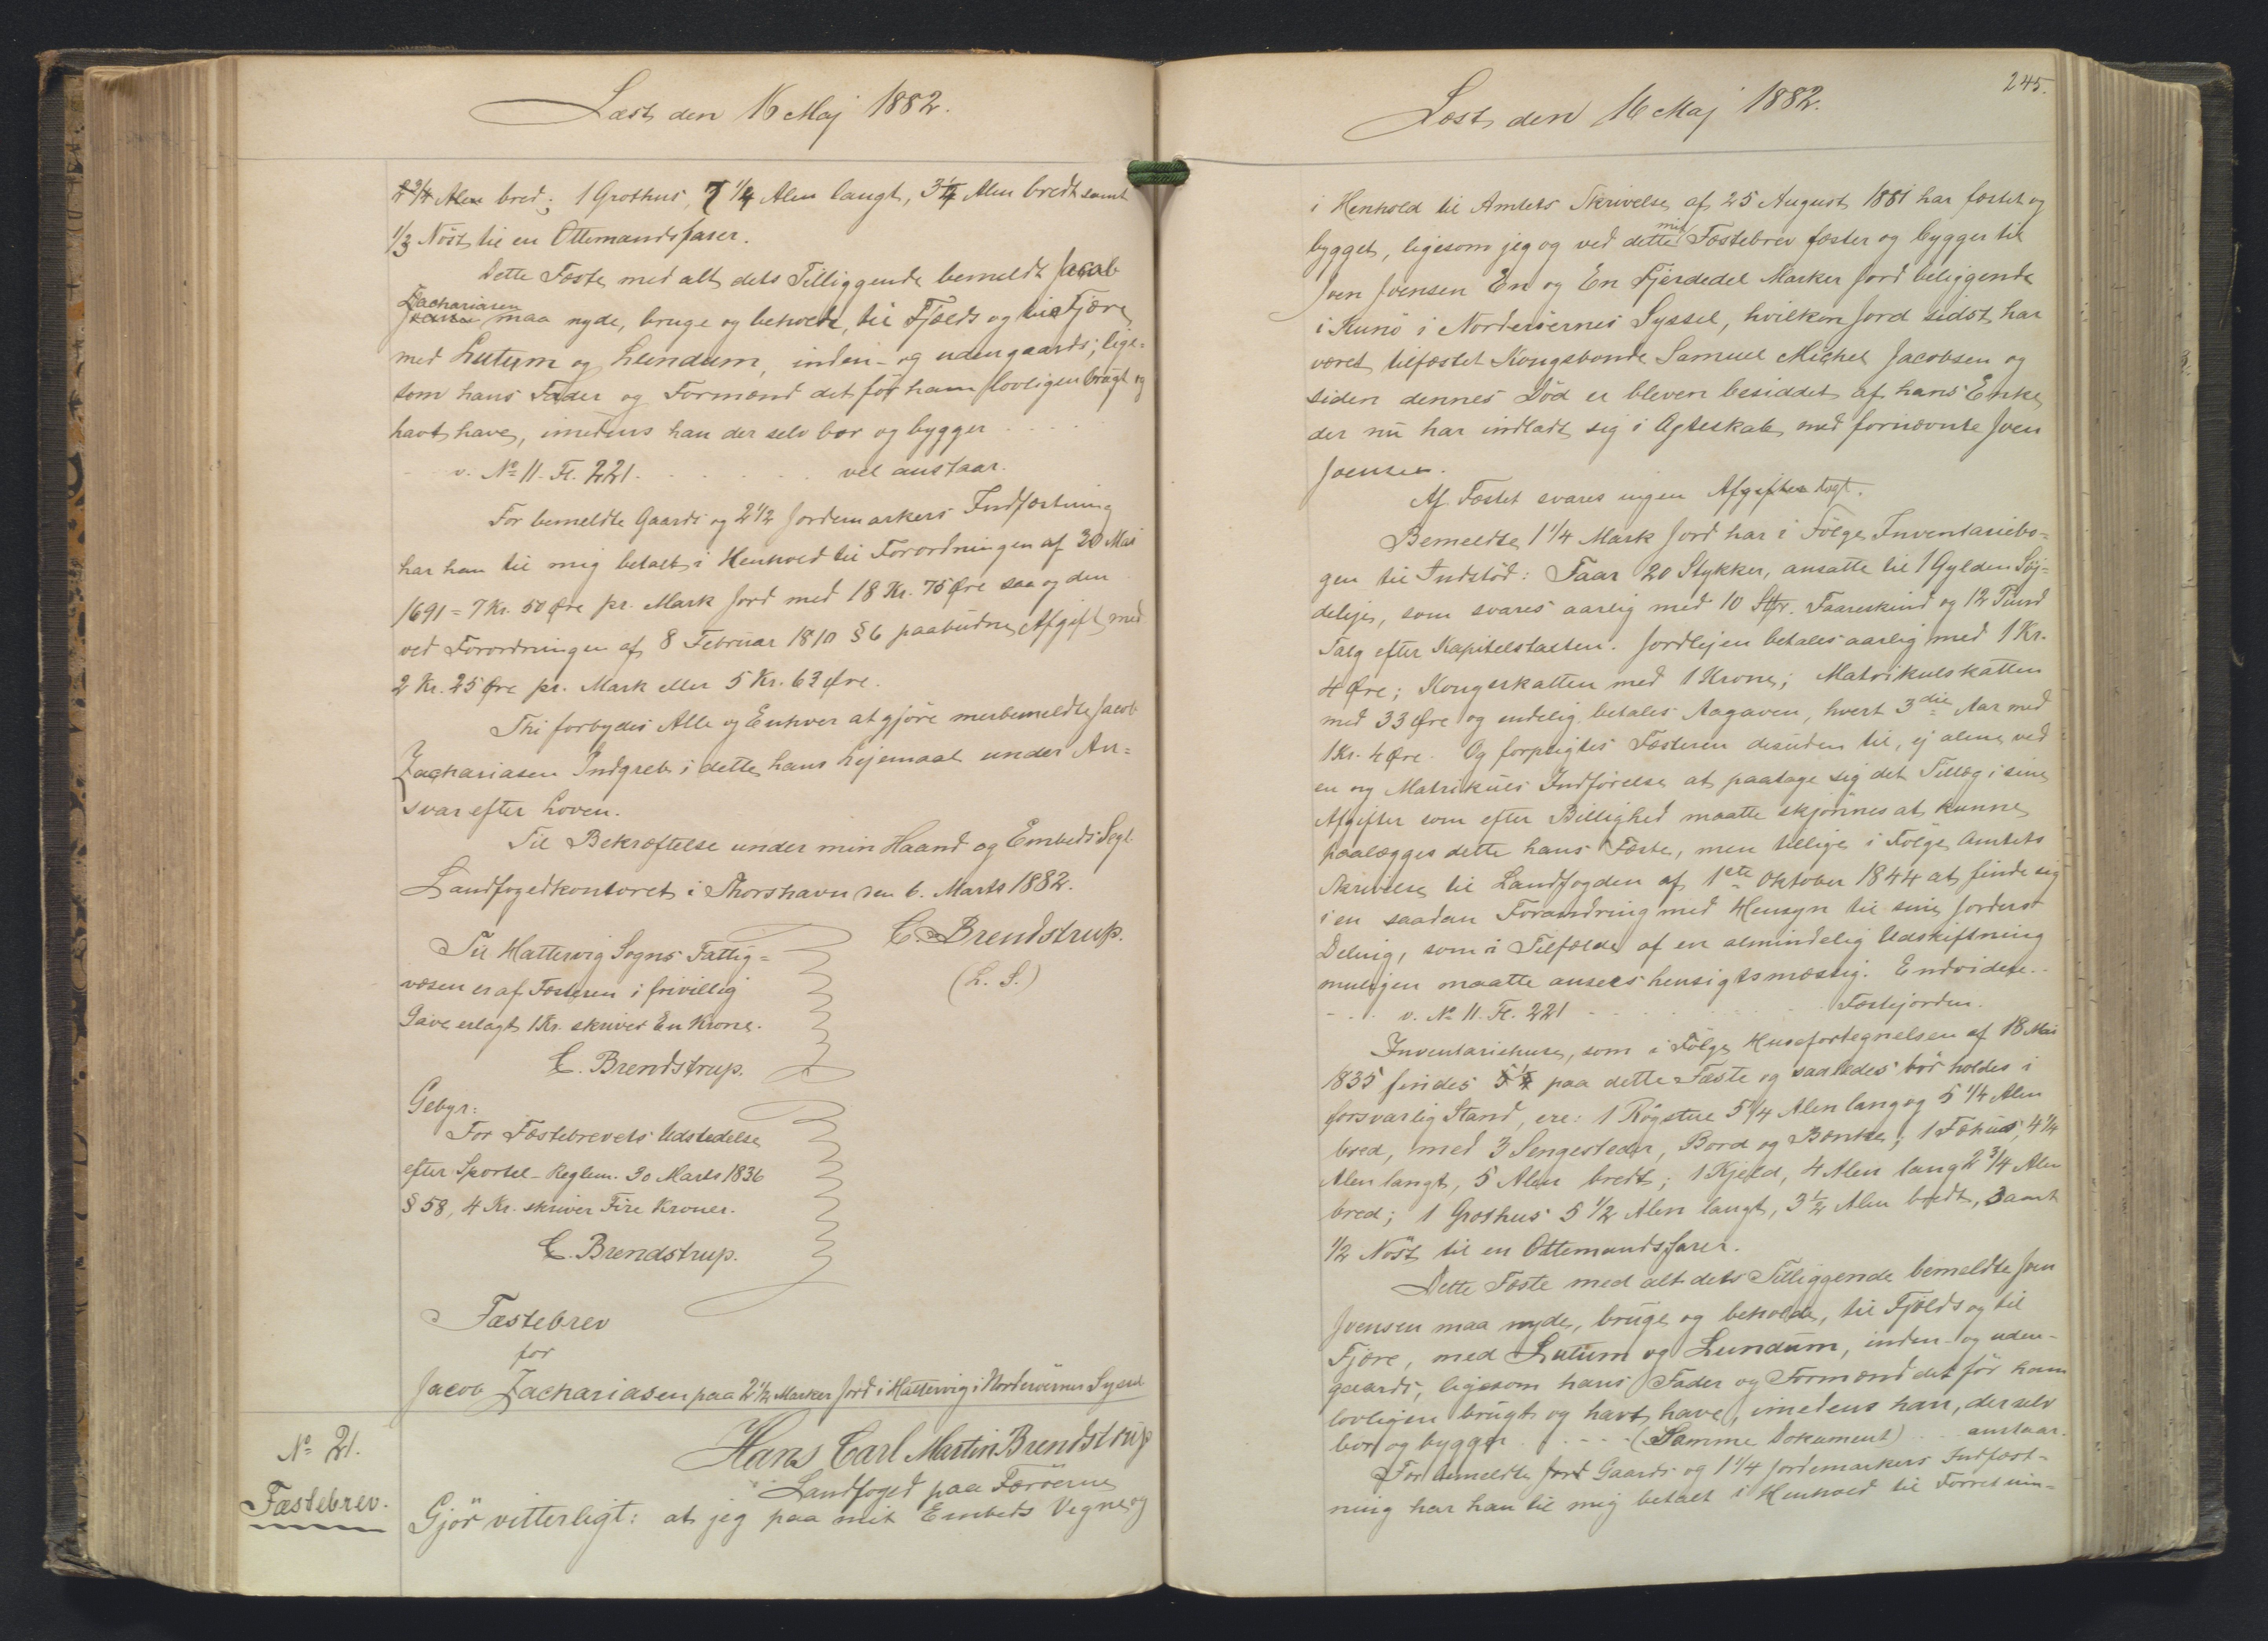 Læst den 16 Maj 1882.
2 3/4 Alen bred; 1 Grothus, 7 1/4 Alen langt, 3 1/4 Alen bredt samt
1/3 Nöst til en Ottemandsfarer.
Dette Fæste med alt dets Tilliggende bemeldt Jacob
Zachariasen
maa nyde, bruge og beholde, til Fjælds og til Fjære
med Lutum og Lundum, inden- og udengaards; lige-
som hans Fader og Formænd det för ham lovligen brugt og
havt have, imedens han der selv bor og bygger . . . .
v. No 11. Fl. 221. . . . . . . vel anstaar.
For bemeldte Gaards og 2 1/2 Jordemarkers Indfæstning
har han til mig betalt i Henhold til Forordningen af 30 Mai
1691 = 7 Kr. 50 Øre pr. Mark Jord med 18 Kr. 75 Øre saa og den
ved Forordningen af 8 Februar 1810 § 6 paabudne Afgift med
2 Kr. 25 Øre pr. Mark eller 5 Kr. 63 Øre.
Thi forbydes Alle og Enhver at gjöre merbemeldte Jacob
Zachariasen Indgreb i dette hans Lejemaal under An-
svar efter Loven.
Til Bekræftelse under min Haand og Embeds Segl.
Landfogedkontoret i Thorshavn den 6. Marts 1882.
C. Brendstrup.
(L. S.)
Til Hattervig Sogns Fattig-
væsen er af Fæsteren i frivillig
Gave erlagt 1 Kr. skriver En Krone.
C. Brendstrup.
Gebyr:
For Fæstebrevets Udstedelse
efter Sportel-Reglem. 30 Marts 1836
§ 58, 4 Kr. skriver Fire Kroner.
C. Brendstrup.
Fæstebrev
for
Jacob Zachariasen paa 2 1/2 Marker Jord i Hattervig i Norderöernes Syssel
No 21.
Fæstebrev.
Hans Carl Martin Brendstrup
Landfoged paa Færöerne
Gjör vitterligt: at jeg paa mit Embeds Vegne og
245.
Læst den 16 Maj 1882.
i Henhold til Amtets Skrivelse af 25 August 1881 har fæstet og
mit
bygget, ligesom jeg og ved dette Fæstebrev fæster og bygger til
Joen Joensen En og En Fjerdedel Marker Jord beliggende
i Kunö i Norderöernes Syssel, hvilken Jord sidst har
været tilfæstet Kongsbonde Samuel Michel Jacobsen og
siden dennes Död er bleven besiddet af hans Enke,
der nu har indladt sig i Ægteskab med fornævnte Joen
Joensen.
Af Fæstet svares ingen Afgift
Bemeldte 1 1/4 Mark Jord har i Fölge Inventariebo-
gen til Indstöd: Faar 20 Stykker, ansatte til 1 Gylden Söj-
deleje, som svares aarlig med 10 Stkr. Faareskind og 12 Pund
Talg efter Kapitelstaxten. Jordlejen betales aarlig med 1 Kr.
4 Øre; Kongsskatten med 1 Krone; Matrikulskatten
med 33 Øre og endelig betales Aagaven, hvert 3die Aar med
1 Kr. 4 Øre. Og forpligtes Fæsteren desuden til, ej alene ved
en ny Matrikuls Indförelse at paatage sig det Tillæg i sine
Afgifter som efter Billighed maatte skjönnes at kunne
paalægges dette hans Fæste, men tillige i Fölge Amtets
Skrivelse til Landfogden af 1ste Oktober 1844 at finde sig
i en saadan Forandring med Hensyn til sine Jorders
Deling, som i Tilfælde af en almindelig Udskiftning
muligen maatte ansees hensigtsmæssig. Endvidere. .
- . . v. No 11. Fl. 221 - . . . . . . . Fæstejorden.
Inventariehuse, som i Fölge Husefortegnelsen af 18 Mai
1835 findes paa dette Fæste og saaledes bör holdes i
forsvarlig Stand, ere: 1 Rögstue 5 1/4 Alen lang og 5 1/4 Alen
bred, med 3 Sengesteder, Bord og Bænke; 1 Fæhus, 4 1/4
Alen langt, 5 Alen bredt; 1 Kjeld, 4 Alen lang 2 3/4 Alen
bred; 1 Grothus 5 1/2 Alen langt, 3 1/2 Alen bredt, samt
1/2 Nöst til en Ottemandsfarer.
Dette Fæste med alt dets Tilliggende bemeldte Joen
Joensen maa nyde, bruge og beholde, til Fjælds og til
Fjære, med Lutum og Lundum, inden- og uden-
gaards, ligesom hans Fader og Formænd det för ham
lovligen brugt og havt have, imedens han, der selv
bor og bygger . . . - - - (Samme Dokument) . . anstaar.
For bemeldte Jord Gaards og 1 1/4 Jordemarkers Indfæst-
ning har han til mig betalt i Henhold til Forretnin-